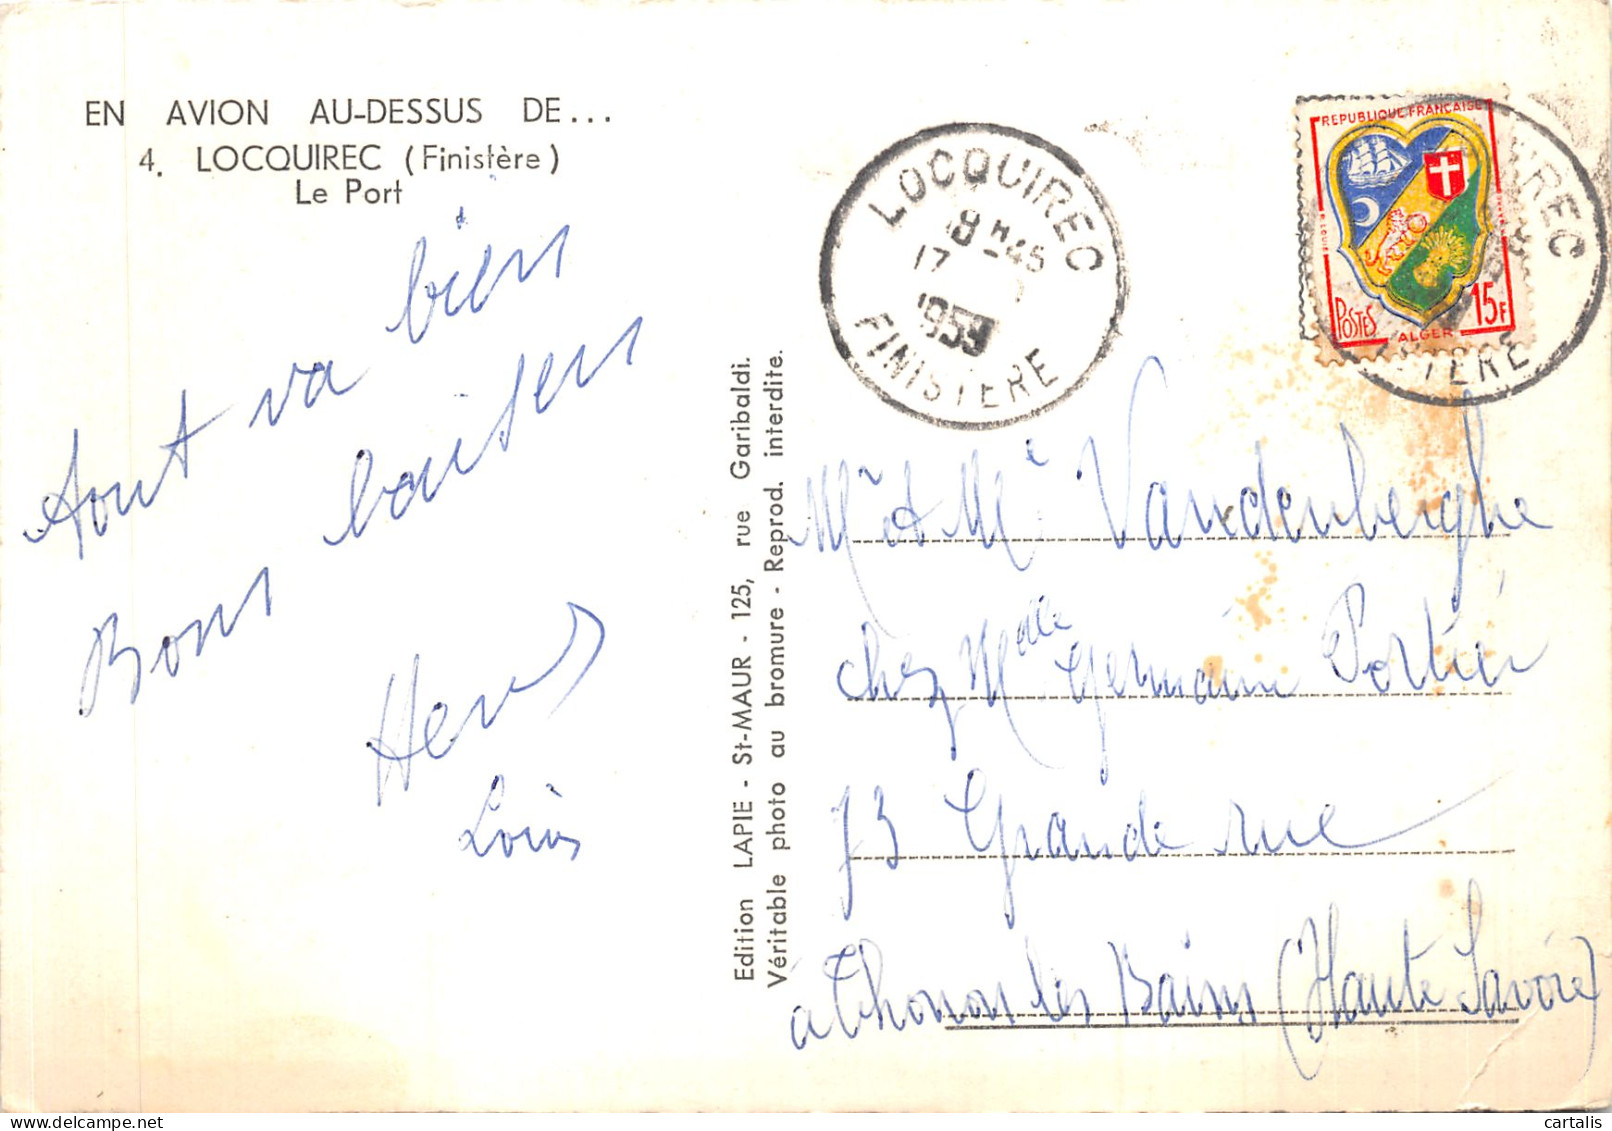 EN AVION AU-DESSUS DE...
4. LOCQUIREC (Finistère)
Le Port
Tout va bien
Bons baisers
Louis
Edition LAPIE - St-MAUR - 125, rue Garibaldi.
Véritable photo au bromure - Reprod. interdite.
LOCQUIREC
18 H 45
17
1959
FINISTERE
REPUBLIQUE FRANÇAISE
POSTES
ALGER
15F
Mr et Me Vandenberghe
chez Melle Germaine Portier
73 Grande rue
à Thonon les Bains (Haute Savoie)
cartalis